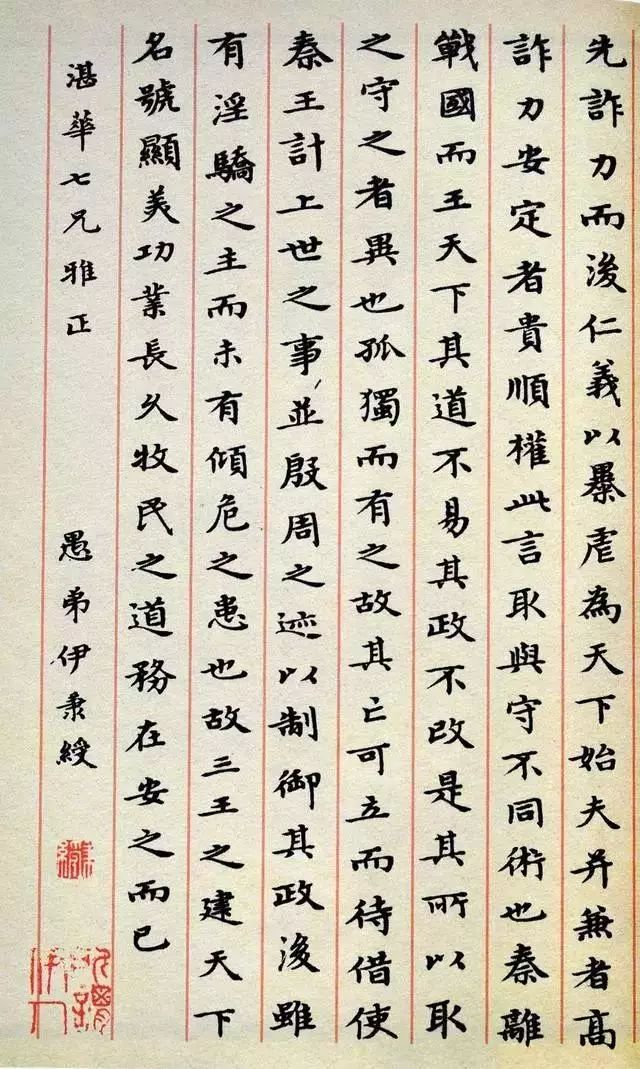 先詐力而後仁義以㬥虐為天下始夫并兼者高
詐力安定者貴順權此言取與守不同術也秦離
戰國而王天下其道不易其政不改是其所以取
之守之者異也孤獨而有之故其亡可立而待借使
秦王計上世之事並殷周之迹以制御其政後雖
有淫驕之主而未有傾危之患也故三王之建天下
名號顯美功業長久牧民之道務在安之而已
湛華七兄雅正 愚弟伊秉綬